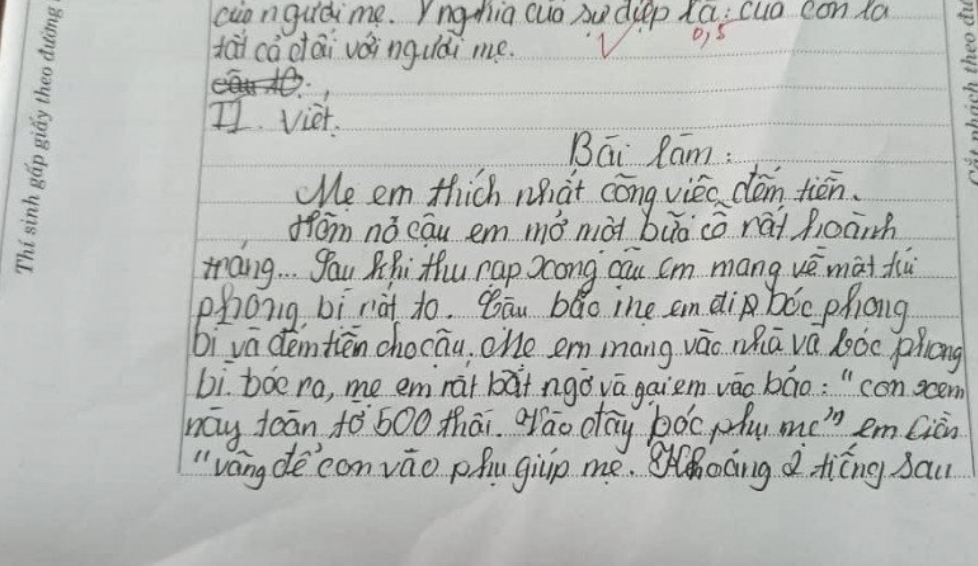 của người mẹ. Ý nghĩa của sự điệp là: của con là
tất cả đối với người mẹ.
0,5
câu 10:
II. Viết.
Bài làm:
Mẹ em thích nhất công việc đếm tiền.
Hôm nó cậu em mở một bữa cỗ rất hoành
tráng... Sau khi thu rạp xong cậu em mang về một túi
phong bì rất to. Cậu bảo mẹ em đi bóc phong
bì và đếm tiền cho cậu. Mẹ em mang vào nhà và bóc phong
bì. bóc ra, mẹ em rất bất ngờ và gọi em vào bảo: "con xem
này toàn tờ 500 thôi. Vào đây bóc phụ mẹ" em liền
"vâng để con vào phụ giúp mẹ. Khoảng 2 tiếng sau
Thí sinh gấp giấy theo đường
phách theo